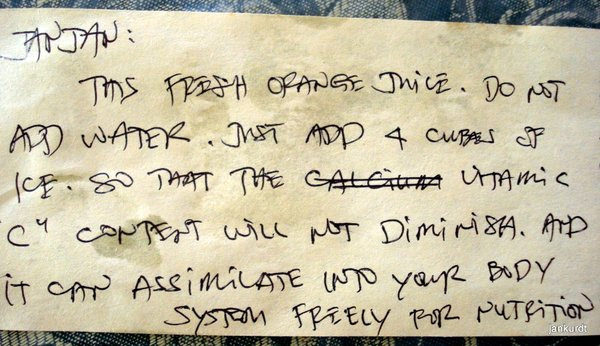 JANJAN:
THIS FRESH ORANGE JUICE. DO NOT
ADD WATER. JUST ADD 4 CUBES OF
ICE. SO THAT THE CALCIUM VITAMIC
"C" CONTENT WILL NOT DIMINISH. AND
IT CAN ASSIMILATE INTO YOUR BODY
SYSTEM FREELY FOR NUTRITION
jankurdt